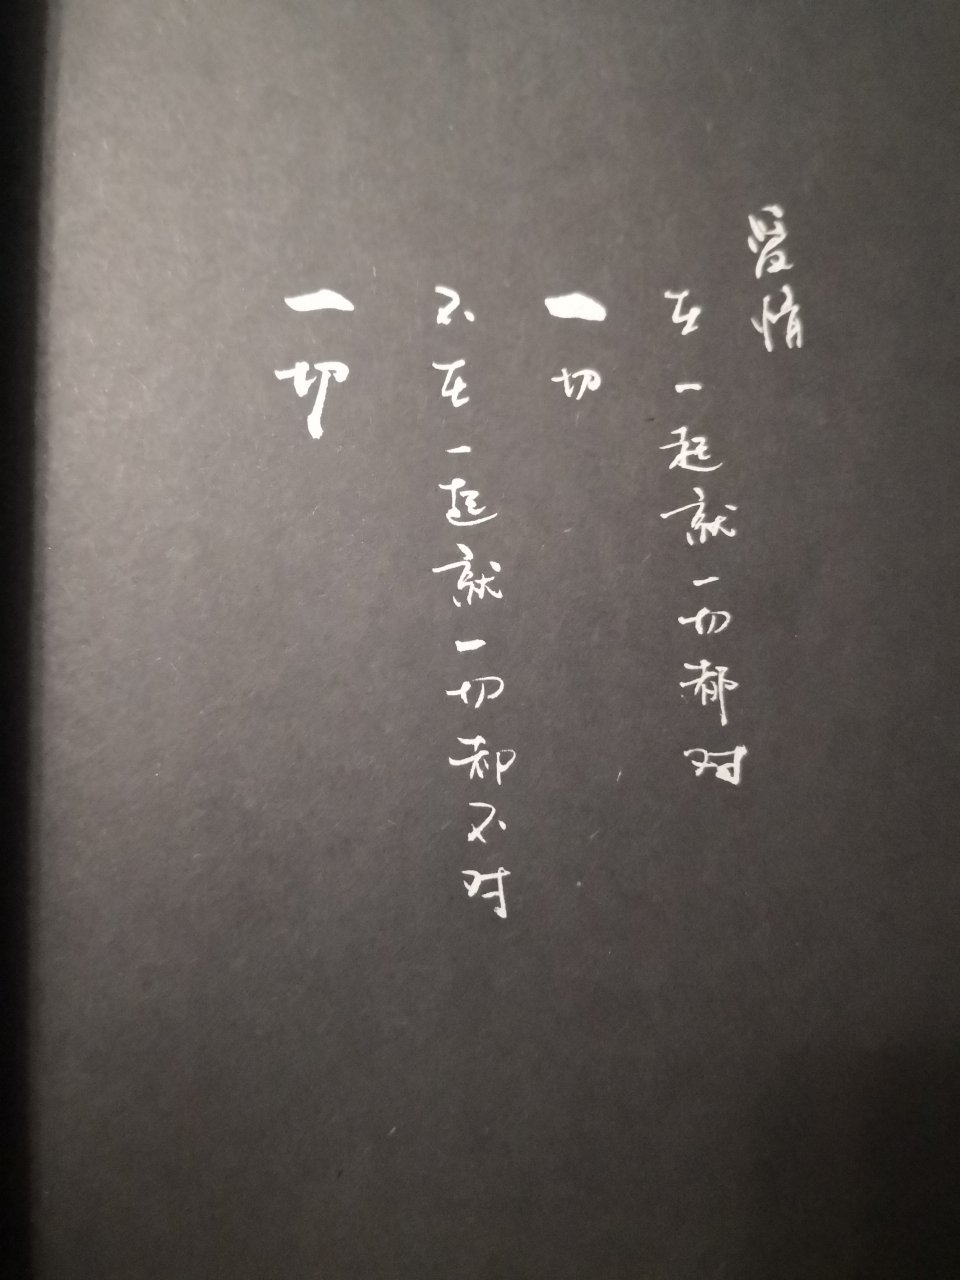 爱情
在一起就一切都对
一切
不在一起就一切却不对
一切